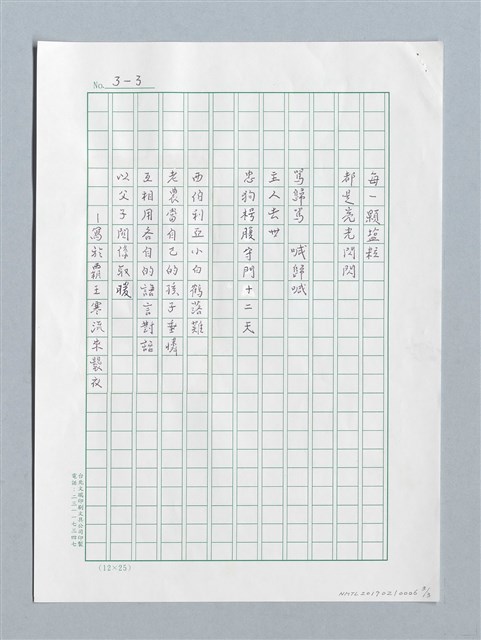 No. 3-3
每一顆鹽粒
都是亮光閃閃
罵歸罵 喊歸喊
主人去世
忠狗枵腹守門十二天
西伯利亞小白鶴落難
老農當自己的孩子垂憐
互相用各自的語言對話
以父子關係取暖
—寫於霸王寒流來襲夜
台北文風印刷文具公司印製
(12×25)
NMTL20170210006 3/3